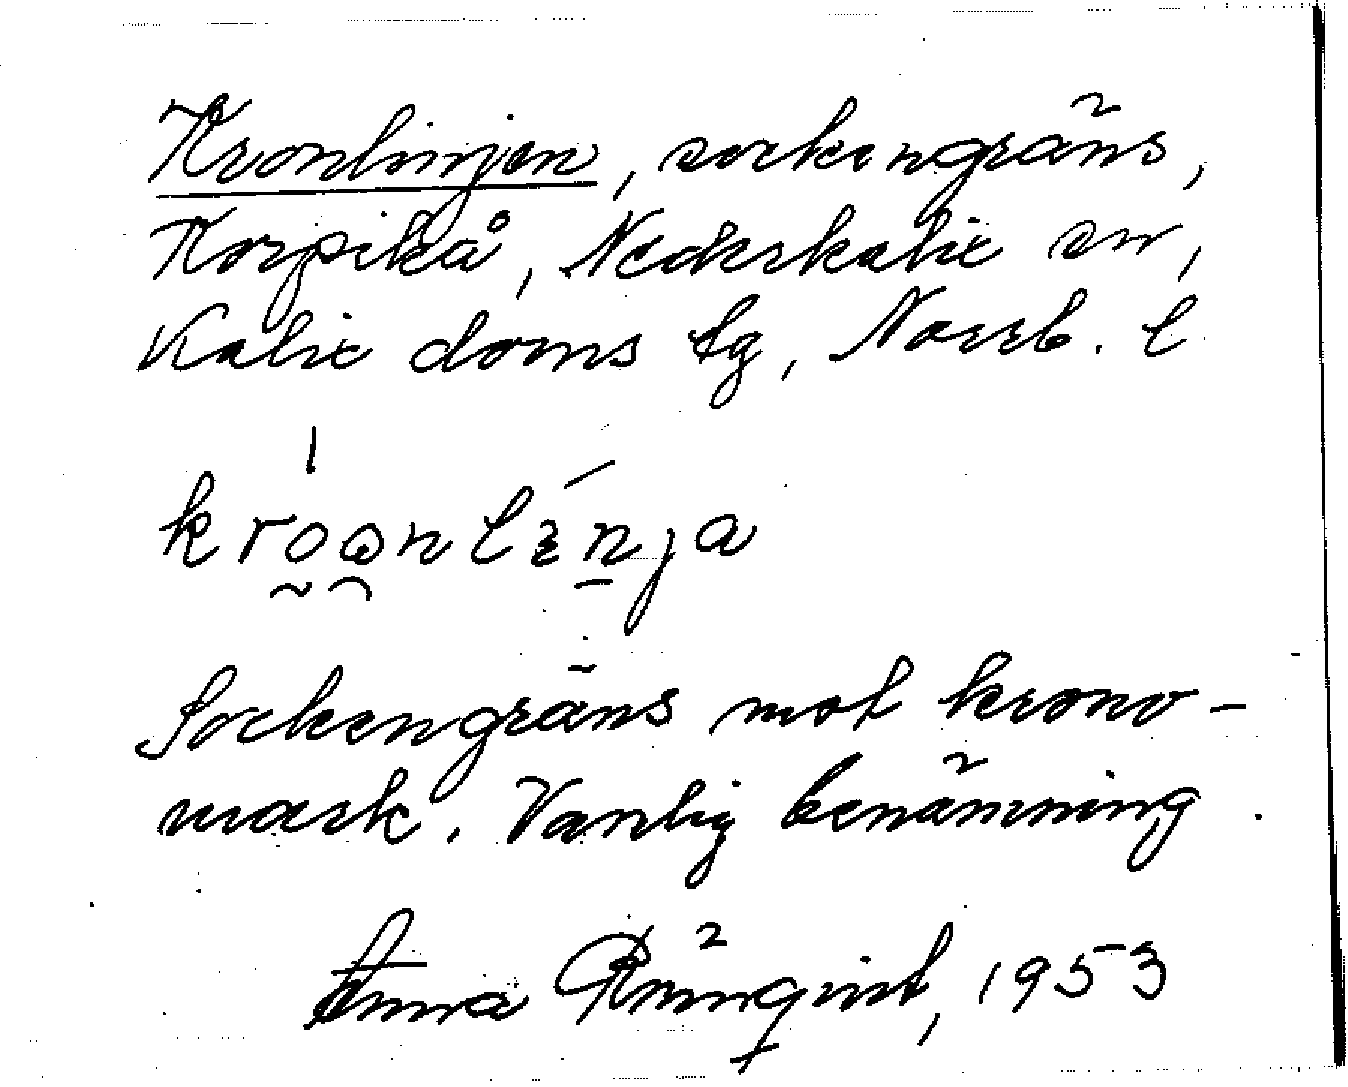 Kronlinjen, sockengräns,
Korpikå, Nederkalix sn,
Kalix doms lg, Norrb. l
Sockengräns mot krono-
mark. Vanlig benämning.
Anna Rönnqvist, 1953